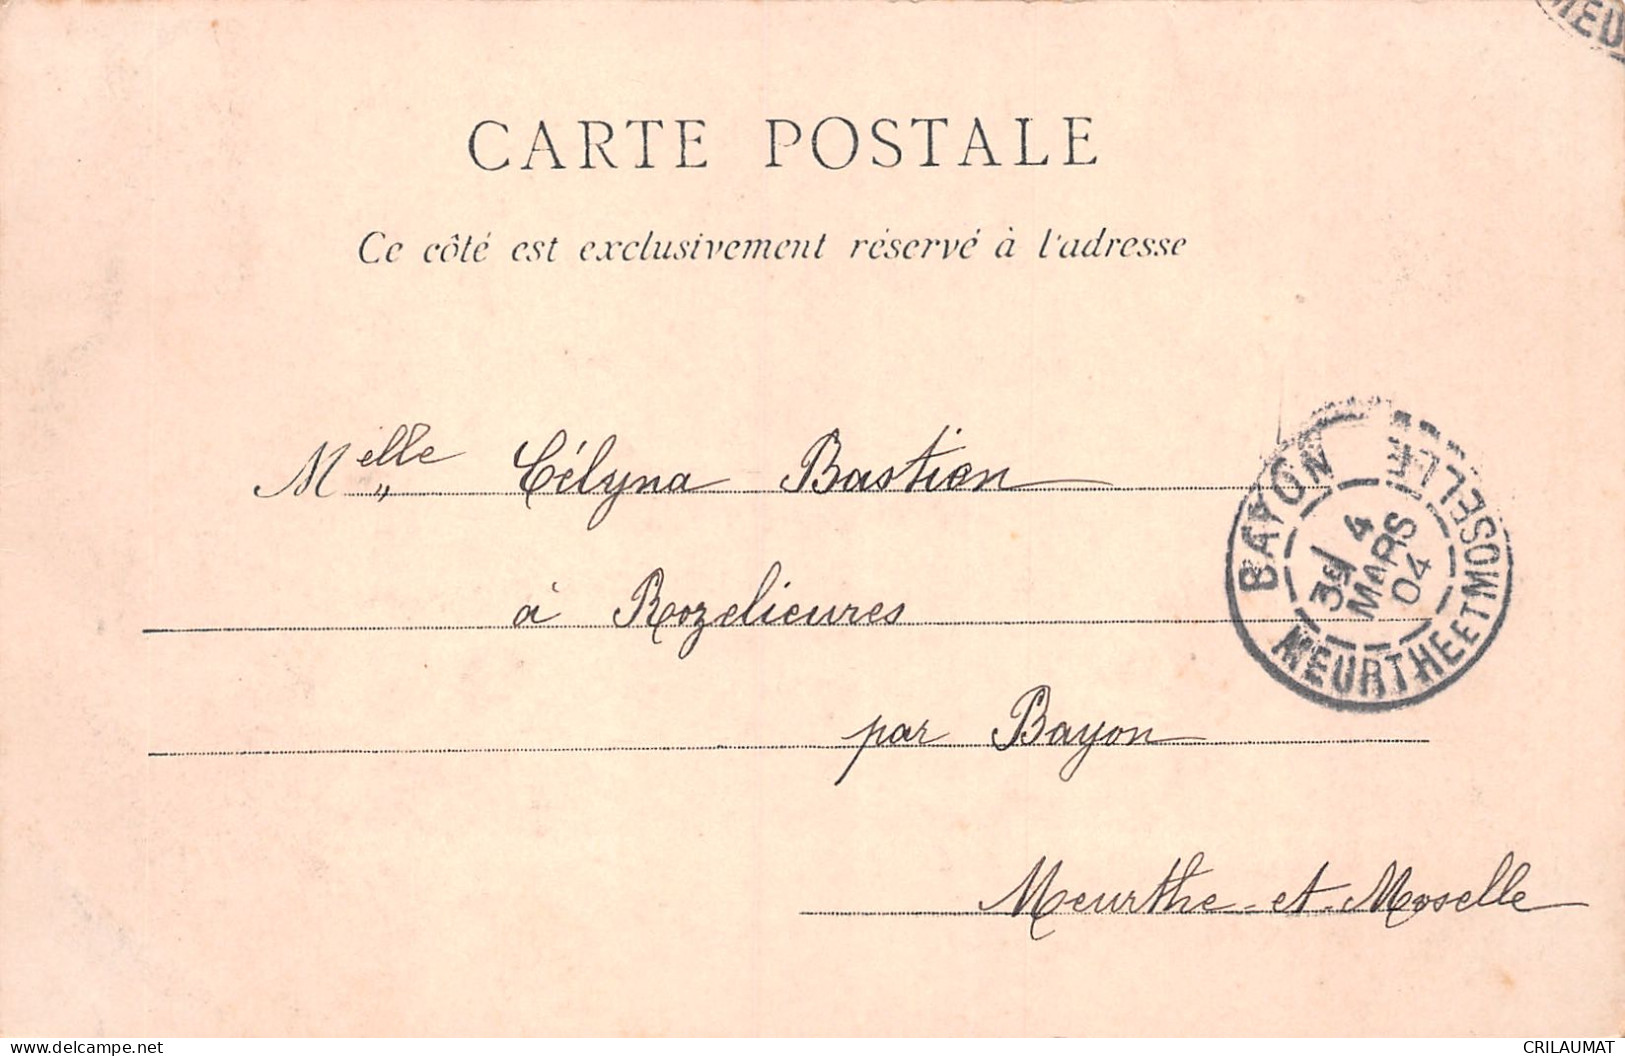 MED
CARTE POSTALE
Ce côté est exclusivement réservé à l'adresse
Melle Célyna Bastien
à Rozelieures
par Bayon
Meurthe-et-Moselle
BAYON
4
MARS
04
MEURTHE ET MOSELLE
delcampe.net
CRILAUMAT